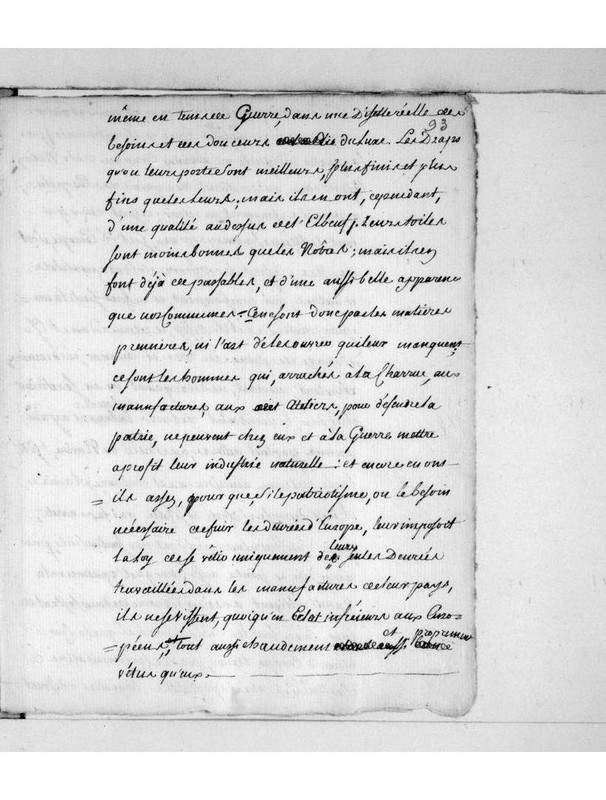 même en tems de Guerre, dans une Disette réelle des
93
besoins et des douceurs du Luxe. Les Draps
qu'on leur porte sont meilleurs, plus finis et plus
fins que les leurs; mais ils en ont, cependant,
d'une qualité audessus de cet Elbeuf. Leurs toiles
sont moins bonnes que les Nôtres; mais ils en
font déjà de passables, et d'une aussi belle apparen
que nos Communes. Ce ne sont donc pas les matières
premières, ni l'art de les ouvrer qui leur manquent;
ce sont les hommes qui, arrachés à la Charrue, aux
manufactures, aux Ateliers, pour défendre la
patrie, ne peuvent chez eux et à la Guerre mettre
a profit leur industrie naturelle: et encore en ont-
ils assez, pour que, si le patriotisme, ou le besoin
nécessaire de fuir les denrées d'Europe, leur imposoit
la Loy de se vêtir uniquement de leurs seules Denrées
travaillées dans les manufactures de leur pays,
ils ne se vissent, quoiqu'en Eclat inférieurs aux Euro-
péens, tout aussi chaudement et proprement
vêtus qu'eux.